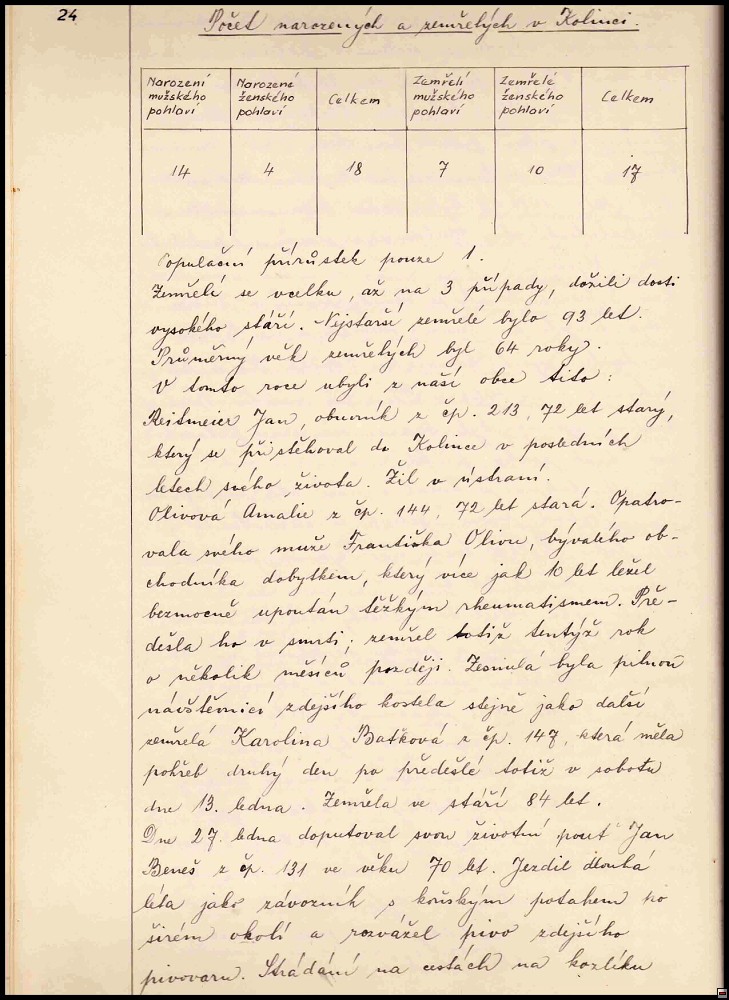 24
Počet narozených a zemřelých v Kolinci.
Narození mužského pohlaví
Narozené ženského pohlaví
Celkem
Zemřelí mužského pohlaví
Zemřelé ženského pohlaví
Celkem
14 4 18 7 10 17
Populační přírůstek pouze 1.
Zemřelí se vcelku, až na 3 případy, dožili dosti
vysokého stáří. Nejstarší zemřelé bylo 93 let.
Průměrný věk zemřelých byl 64 roky.
V tomto roce ubyli z naší obce tito:
Reitmeier Jan, obuvník z čp. 213, 72 let starý,
který se přistěhoval do Kolince v posledních
letech svého života. Žil v ústraní.
Olivová Amalie z čp. 144, 72 let stará. Opatro-
vala svého muže Františka Olivu, bývalého ob-
chodníka dobytkem, který více jak 10 let ležel
bezmocně upoután těžkým rheumatismem. Pře-
dešla ho v smrti; zemřel totiž tentýž rok
o několik měsíců později. Zesnulá byla pilnou
návštěvnicí zdejšího kostela stejně jako další
zemřelá Karolina Baťková z čp. 147, která měla
pohřeb druhý den po předešlé totiž v sobotu
dne 13. ledna. Zemřela ve stáří 84 let.
Dne 27. ledna doputoval svou životní pouť Jan
Beneš z čp. 131 ve věku 70 let. Jezdil dlouhá
léta jako závozník s koňským potahem po
širém okolí a rozvážel pivo zdejšího
pivovaru. Strádání na cestách na kozlíku